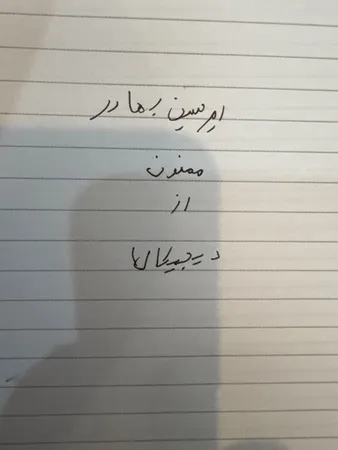 بهادر
ممنون
از
دیجیکالا